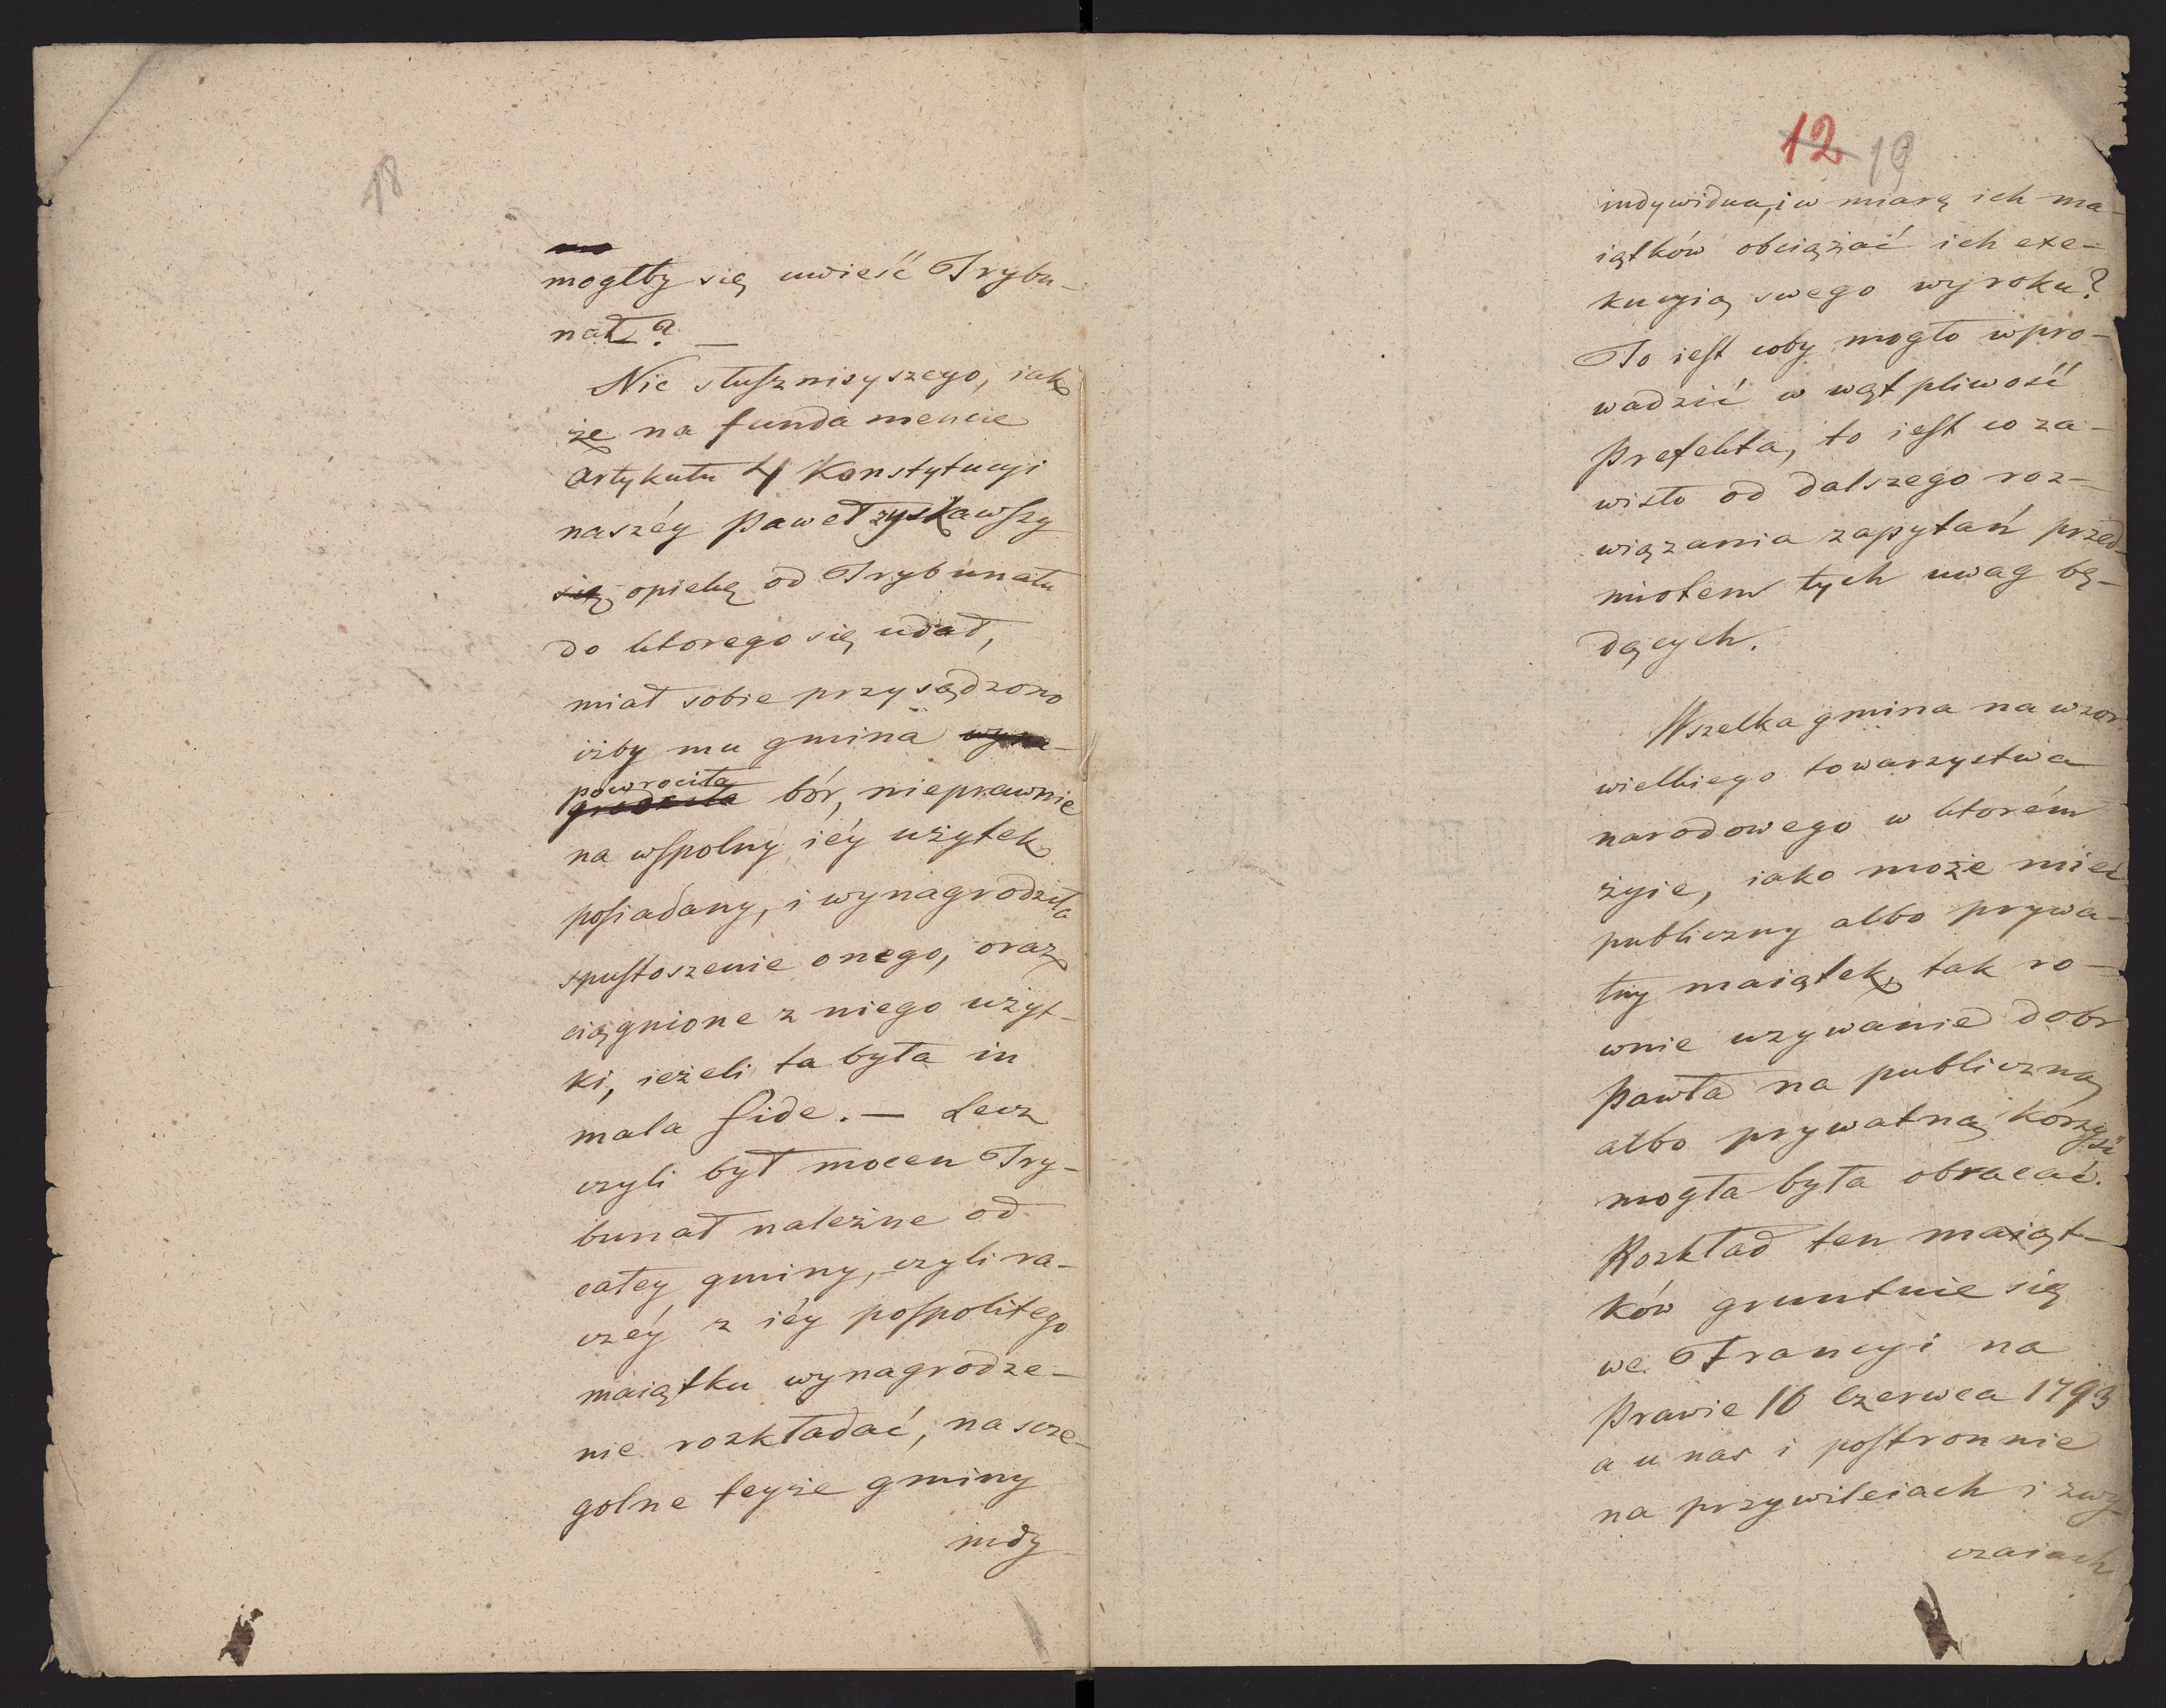 18
mogłby się uwieść Trybu-
nał? —
Nic słusznieyszego, iak
że na fundamencie
Artykułu 4 Konstytucyi
naszéy Paweł zyskawszy
się opiekę od Trybunału
do ktorego się udał,
miał sobie przysądzono
iżby mu gmina
powrociła
grodziła bór, nieprawnie
na wspolny iéy użytek
posiadany, i wynagrodziła
spustoszenie onego, oraz
ciągnione z niego użyt-
ki, ieżeli ta była in
mala fide. — Lecz
czyli był mocen Try-
bunał należne od
całey gminy, czyli ra-
czéy z iéy pospolitego
maiątku wynagrodze-
nie rozkładać, na scze-
golne teyże gminy
indy
12 19
indywidua, i w miarę ich ma-
iątków obciążać ich exe-
kucyią swego wyroku?
To iest coby mogło wpro-
wadzić w wątpliwość
Prefekta, to iest co za-
wisło od dalszego roz-
wiązania zapytań przed-
miotem tych uwag bę-
dących.
Wszelka gmina na wzor
wielkiego towarzystwa
narodowego w ktorém
żyie, iako może mieć
publiczny albo prywa-
tny maiątek, tak ro-
wnie uzywanie dobr
Pawła na publiczną
albo prywatną korzyść
mogła była obracać.
Rozkład ten maiąt-
ków gruntuie się
we Francyi na
Prawie 10 Czerwca 1793
a u nas i postronnie
na przywileiach i zwy
czaiach